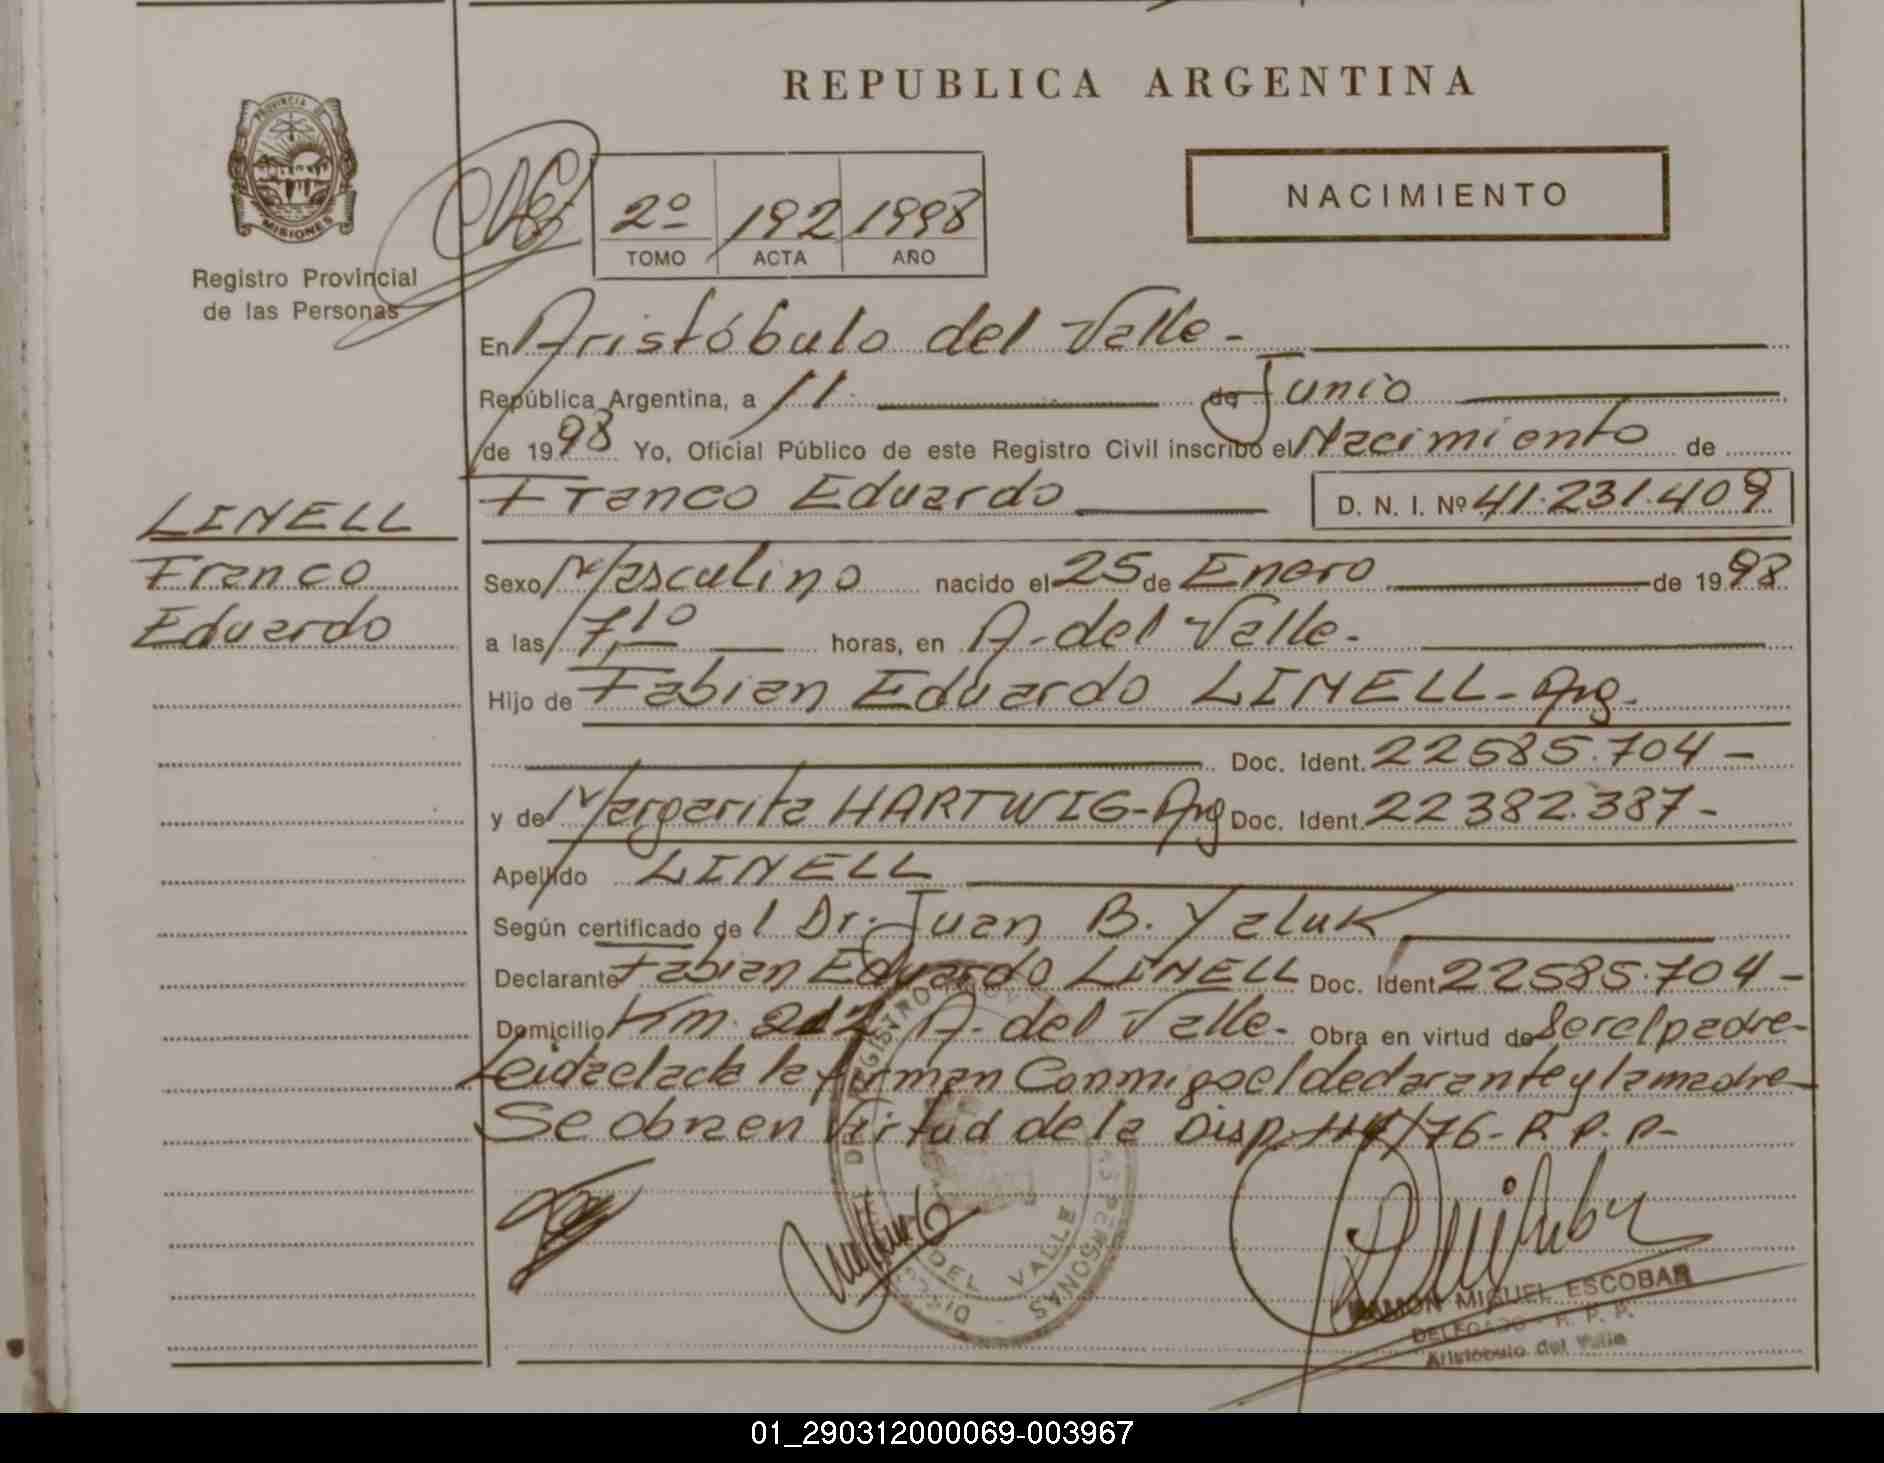 REPUBLICA ARGENTINA
PROVINCIA DE
MISIONES
Registro Provincial
de las Personas
2º 192 1998
TOMO ACTA AÑO
NACIMIENTO
En Aristóbulo del Valle-
República Argentina, a 11 de Junio
de 1998 Yo, Oficial Público de este Registro Civil inscribo el Nacimiento de
Franco Eduardo D. N. I. Nº 41.231.409
LINELL
Franco
Eduardo
Sexo Masculino nacido el 25 de Enero de 1998
a las 7,10 horas, en A. del Valle.
Hijo de Fabian Eduardo LINELL- Arg.
Doc. Ident. 22585.704-
y de Margarita HARTWIG- Arg Doc. Ident. 22382.387-
Apellido LINELL
Según certificado de l Dr. Juan B. Yaluk
Declarante Fabian Eduardo LINELL Doc. Ident. 22585.704-
Domicilio Km. 212 A. del Valle. Obra en virtud de Ser el padre-
Leida el acta la firman Conmigo el declarante y la madre-
Se obra en Virtud de la Disp. /76- R. P. P-
DEL VALLE
PERSONAS
RAMON MIGUEL ESCOBAR
DELEGADO - R. P. P.
Aristóbulo del Valle
01_290312000069-003967